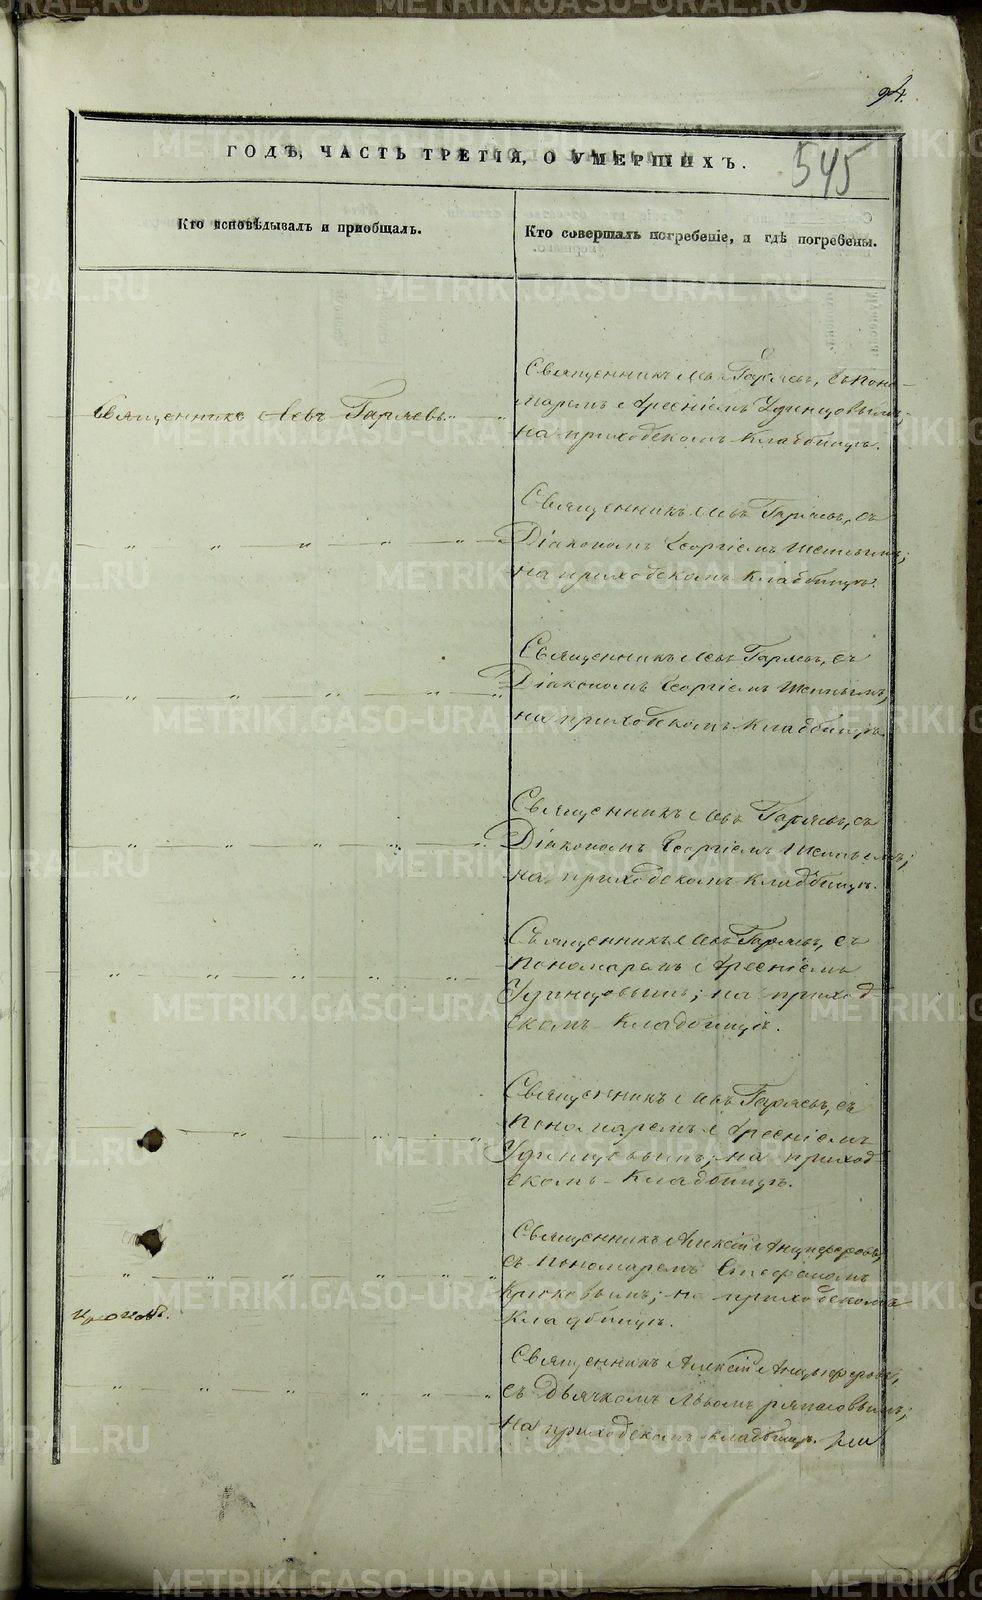 94.
545
ГОДЪ, ЧАСТЬ ТРЕТІЯ, О УМЕРШИХЪ.
Кто исповѣдывалъ и пріобщалъ.
Кто совершалъ погребеніе, и гдѣ погребены.
Священникъ Левъ Гаряевъ.
Священникъ Левъ Гаряевъ, съ поно-
маремъ Арсеніемъ Удинцовымъ,
на приходскомъ кладбищѣ.
Священникъ Левъ Гаряевъ, съ
Діакономъ Георгіемъ
на приходскомъ кладбищѣ.
Священникъ Левъ Гаряевъ, съ
Діакономъ Георгіемъ
на приходскомъ кладбищѣ.
Священникъ Левъ Гаряевъ, съ
Діакономъ Георгіемъ
на приходскомъ кладбищѣ.
Священникъ Левъ Гаряевъ, съ
пономаремъ Арсеніемъ
Удинцовымъ; на приход-
скомъ кладбищѣ.
Священникъ Левъ Гаряевъ, съ
пономаремъ Арсеніемъ
Удинцовымъ; на приход-
скомъ кладбищѣ.
Священникъ Алексій Анциферовъ,
съ пономаремъ Стефаномъ
Крюковымъ; на приходскомъ
кладбищѣ.
Священникъ Алексій Анциферовъ,
съ дьячкомъ Львомъ
на приходскомъ кладбищѣ.
METRIKI.GASO-URAL.RU